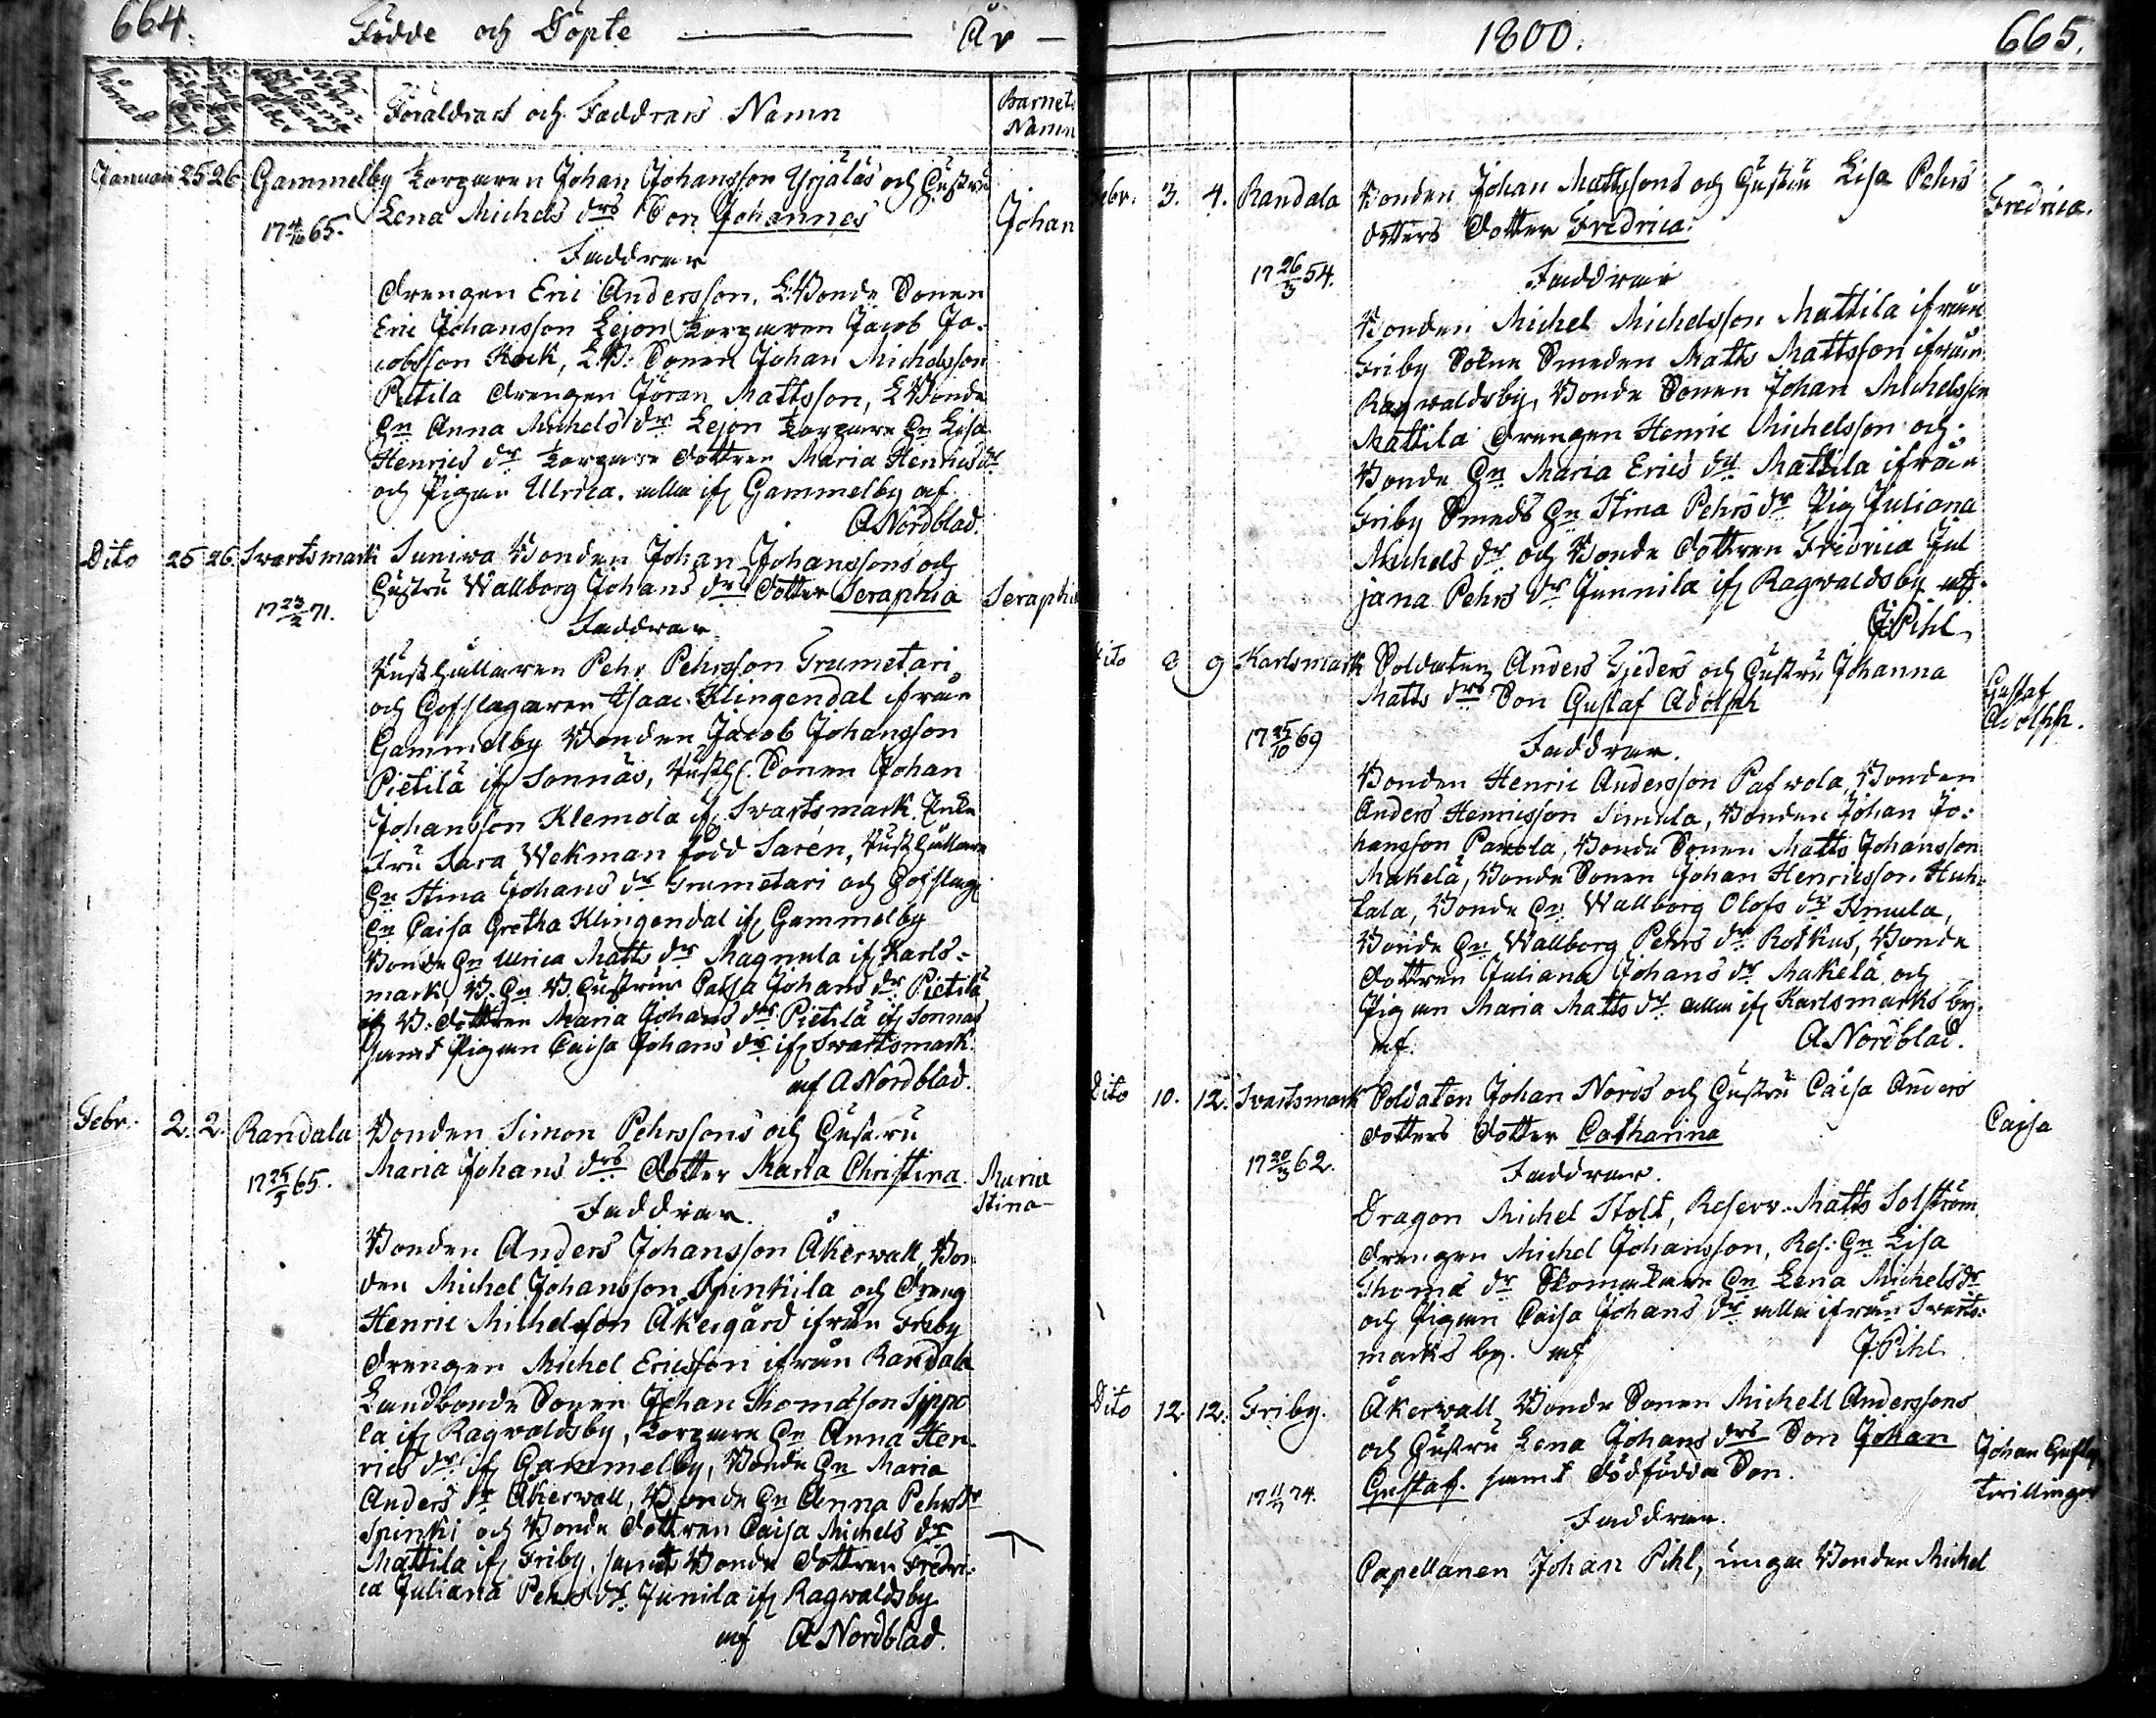 664. Födde och Döpte År
Månad
Föräldrars och Faddrars Namn
Barnets
Namn
Januari 25 26 Gammelby Torparen Johan Johansson Yrjälas och Hustru
Lena Michels drs Son Johannes
Johan
17 65.
Faddrar
Drengen Eric Andersson, L. Bonde Sonen
Eric Johansson Lejon, Torparen Jacob Ja-
cobsson Kock, L.B. Sonen Johan Michelsson
Pätila Drengen Jöran Mattsson, L Bonde
Hn Anna Michels dr Lejon Torpare Hn Lisa
Henrics dr Torpare Dottren Maria Henrics dr
och Pigan Ulrica. alla if Gammelby af
A Nordblad.
Dito 25 26 Svartsmark Suniwa Bonden Johan Johanssons och
Hustru Wallborg Johans drs Dotter Seraphia
Seraphia
17 23/2 71.
Faddrar
Rusthållaren Pehr Pehrsson Trumetari
och Hofslagaren Isaac Klingendal ifrån
Gammelby Bonden Jacob Johansson
Pietilä if Sonnäs, Rusth. Sonen Johan
Johansson Klemola if Svartsmark. Enke
Fru Sara Wekman född Sarén, Rusthållare
Hn Stina Johans dr Trumetari och Hofslag
Hn Caisa Gretha Klingendal if Gammelby
Bonde Hn Ulrica Matts dr Magnula if Karls-
mark, B. Hn B. Hustrun Caisa Johans dr Pietilä
if B. Dottren Maria Johans dr Pietilä if Sonnäs
samt Pigan Caisa Johans dr if Svartsmark.
af A Nordblad.
Febr. 2. 2. Randala Bonden Simon Pehrssons och Hustru
Maria Johans drs Dotter Maria Christina
Maria
Stina
17 25/5 65.
Faddrar.
Bonden Anders Johansson Åkerwall, Bon-
den Michel Johansson Spinkila och Dreng
Henric Michelsson Åkergård ifrån Friby
Drengen Michel Ericsson ifrån Randala
Landbonde Sonen Johan Thomasson Sippo
la if Ragwaldsby, Torpare Hn Anna Hen-
rics dr if Gammelby, Bonde Hn Maria
Anders dr Åkerwall, Bonde Hn Anna Pehrs dr
Spinki och Bonde Dottren Caisa Michels dr
Mattila if Friby, samt Bonde Dottren Fredri-
ca Juliana Pehrs dr Junila if Ragwaldsby
af A Nordblad.
1800. 665.
Febr. 3. 4. Randala Bonden Johan Mattssons och Hustru Lisa Pehrs
dotters Dotter Fredrica.
Fredrica.
17 26/3 54.
Faddrar
Bonden Michel Michelsson Mattila ifrån
Friby Sokne Smeden Matts Mattsson ifrån
Ragwaldsby, Bonde Sonen Johan Michelsson
Mattila Drengen Henric Michelsson och
Bonde Hn Maria Erics dr Mattila ifrån
Friby Smeds Hn Stina Pehrs dr Pig Juliana
Michels dr och Bonde Dottren Fredrica Jul
jana Pehrs dr Junnila if Ragwaldsby af
J Pihl
Dito 8 9 Karlsmark Soldaten Anders Gjeders och Hustru Johanna
Matts drs Son Gustaf Adolph
Gustaf
Adolph.
17 25/10 69
Faddrar.
Bonden Henric Andersson Pafwola, Bonden
Anders Henricsson Simula, Bonden Johan Jo-
hansson Panola, Bonde Sonen Matts Johansson
Makelä, Bonde Sonen Johan Henricsson Huh-
tala, Bonde Hn Wallborg Olofs dr Simula,
Bonde Hn Wallborg Pehrs dr Rotkus, Bonde
Dottren Juliana Johans dr Makelä och
Pigan Maria Matts dr alla if Karlsmarks by.
af. A Nordblad.
Dito 10. 12. Svartsmark Soldaten Johan Nords och Hustru Caisa Anders
dotters Dotter Catharina
Caisa
17 30/3 62.
Faddrar.
Dragon Michel Stolt, Reserv. Matts Solström
Drengen Michel Johansson, Res: Hn Lisa
Thomas dr Skomakare Hn Lena Michels dr
och Pigan Caisa Johans dr alla ifrån Svarts-
marks by. af J. Pihl
Dito 12. 12. Friby. Åkerwall Bonde Sonen Michell Anderssons
och Hustru Lena Johans drs Son Johan
Gustaf. samt Dödfödda Son.
Johan Gustaf
Tvillingar
17 74.
Faddrar.
Capellanen Johan Pihl, unga Bonden Michel